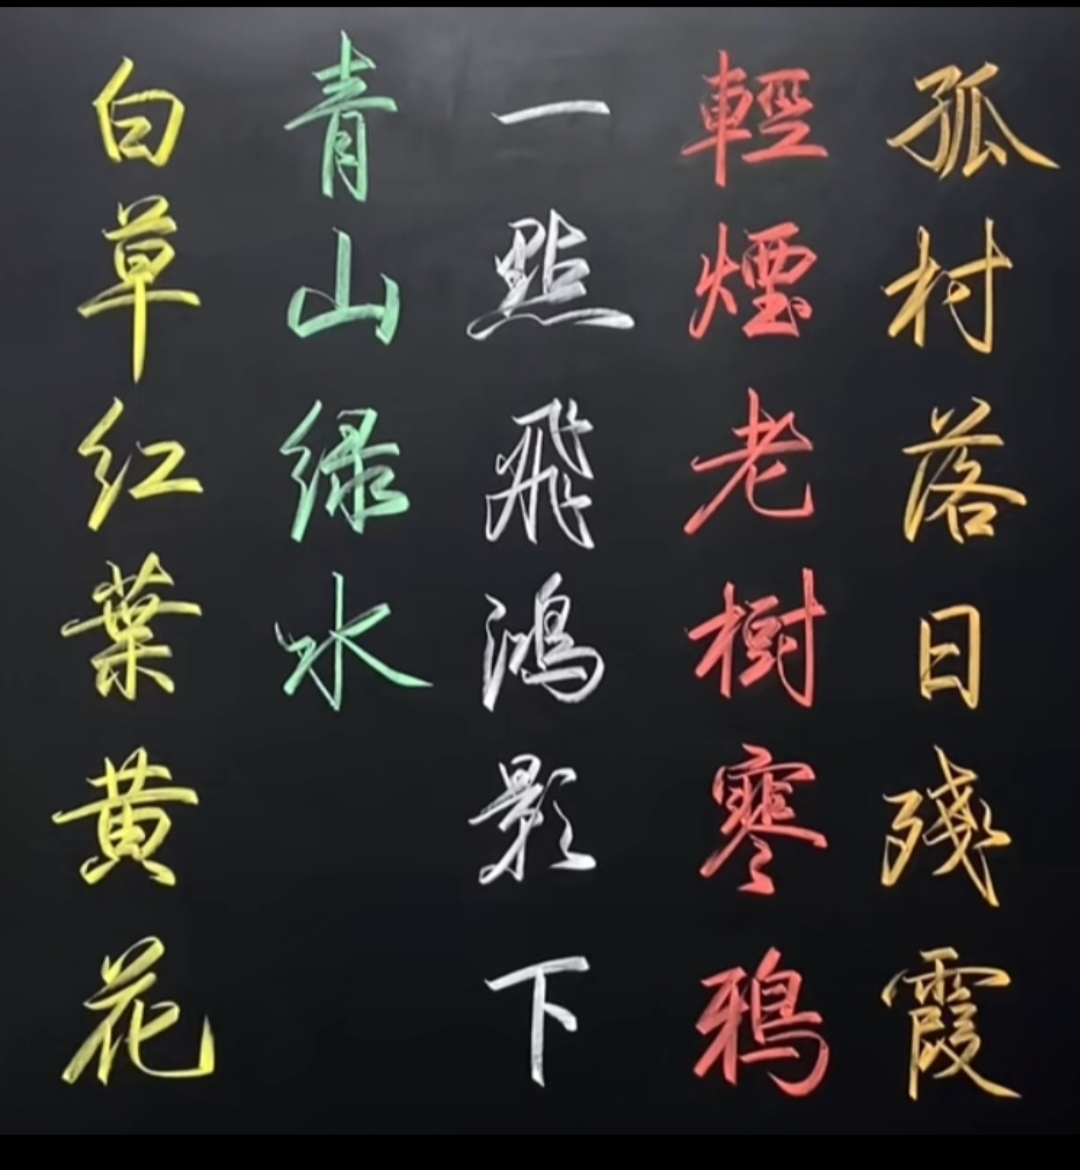 孤村落日殘霞
輕煙老樹寒鴉
一點飛鴻影下
青山绿水
白草红葉黄花